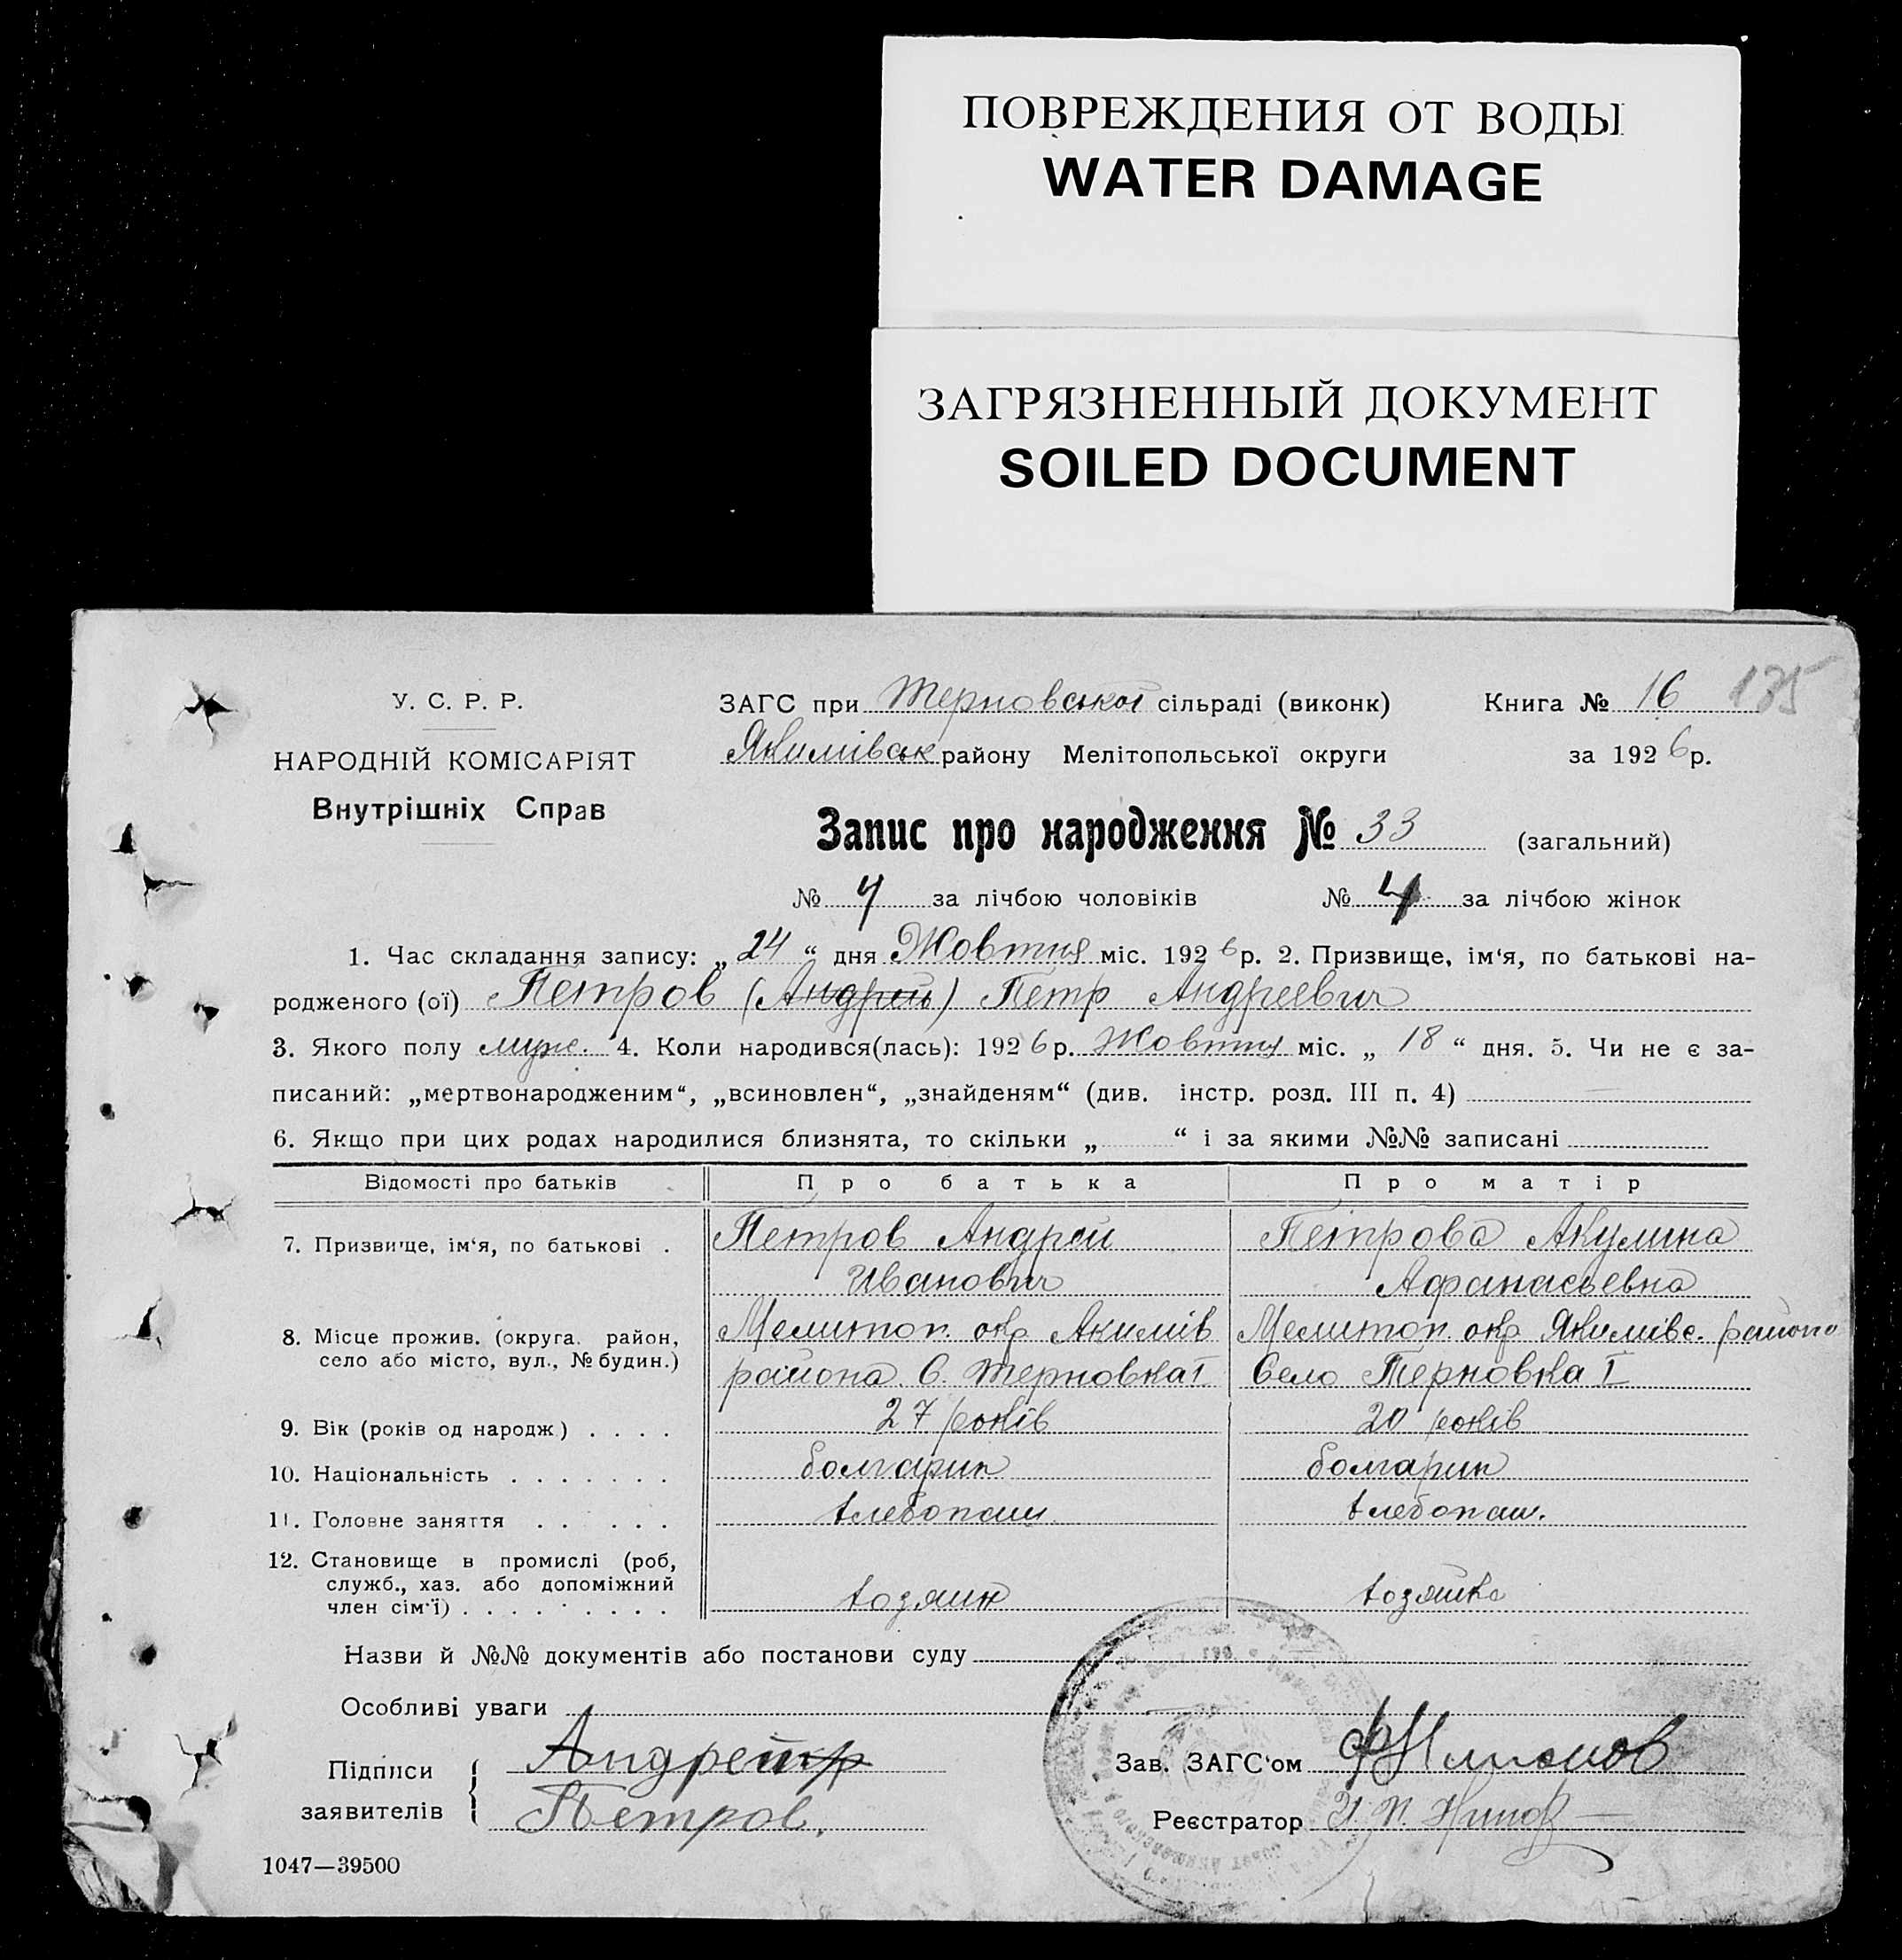 ПОВРЕЖДЕНИЯ ОТ ВОДЫ
WATER DAMAGE
ЗАГРЯЗНЕННЫЙ ДОКУМЕНТ
SOILED DOCUMENT
У. С. Р. Р.
НАРОДНІЙ КОМІСАРІЯТ
Внутрішніх Справ
ЗАГС при Терновської сільраді (виконк)
Якимівськ району Мелітопольської округи
Книга № 16 175
за 1926 р.
Запис про народження № 33 (загальний)
№ 4 за лічбою чоловіків № 4 за лічбою жінок
1. Час складання запису: „24“ дня Жовтня міс. 1926 р. 2. Призвище, ім‘я, по батькові на-
родженого (ої) Петров (Андрей) Петр Андреевич
3. Якого полу муж. 4. Коли народився(лась): 1926 р. Жовтня міс. „18“ дня. 5. Чи не є за-
писаний: „мертвонародженим“, „всиновлен“, „знайденям“ (див. інстр. розд. III п. 4)
6. Якщо при цих родах народилися близнята, то скільки „ “ і за якими №№ записані
Відомості про батьків Про батька Про матір
7. Призвище, ім‘я, по батькові . Петров Андрей Петрова Акулина
Иванович Афанасьевна
8. Місце прожив. (округа. район, Мелитоп. окр Акимів Мелитоп. окр Якимівс. района
село або місто, вул., № будин.) района. С. Терновка I Село Терновка I
9. Вік (років од народж) . . . . 27 років 20 років
10. Національність . . . . . . . болгарин болгарин
11. Головне заняття . . . . . хлебопаш. хлебопаш.
12. Становище в промислі (роб,
служб., хаз. або допоміжний
член сім‘ї) . . . . . . . . . хозяин хозяйка
Назви й №№ документів або постанови суду
Особливі уваги
Підписи заявителів { Андрей
Петров.
Зав. ЗАГС‘ом
Реєстратор
1047—39500